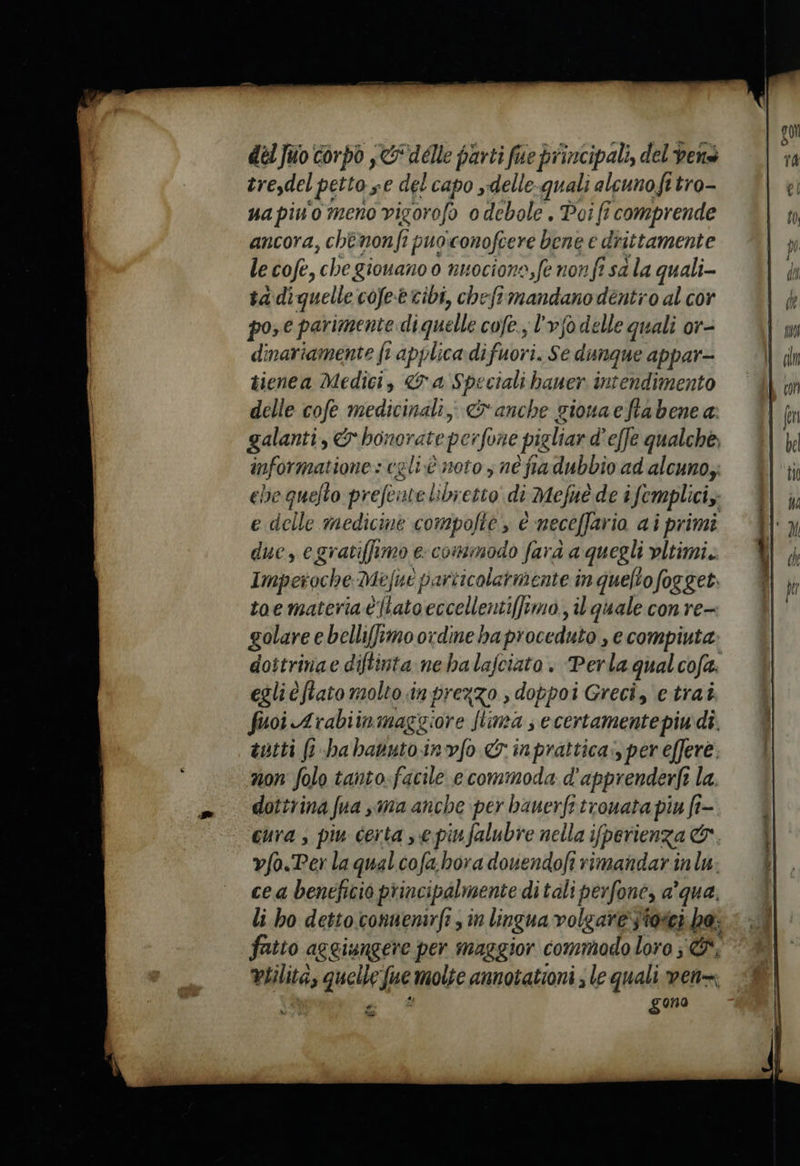 del ſuo corpo, & delle parti ſue principali, del ven-
tre, del petto, e del capo, delle quali alcuno ſi tro-
ua piu o meno vigoroſo o debole. Poi ſi comprende
ancora, che non ſi puo conoſcere bene e drittamente
le coſe, che giouano o nuociono, ſe non ſi sà la quali-
tà di quelle coſe e cibi, che ſi mandano dentro al cor
po, e parimente di quelle coſe, l'vſo delle quali or-
dinariamente ſi applica di fuori. Se dunque appar-
tiene a Medici, & a Speciali hauer intendimento
delle coſe medicinali, & anche gioua e ſta bene a
galanti, & honorate perſone pigliar d'eſſe qualche
informatione: egli è noto, nè fia dubbio ad alcuno,
che queſto preſente libretto di Meſuè de i ſemplici,
e delle medicine compoſte, è neceſſario a i primi
due, e gratiſſimo e commodo ſarà a quegli vltimi.
Imperoche Meſuè particolarmente in queſto ſogget
to e materia è ſtato eccellentiſſimo, il quale con re-
golare e belliſſimo ordine ha proceduto, e compiuta
dottrina e diſtinta ne ha laſciato. Per la qual coſa
egli è ſtato molto in prezzo, doppo i Greci, e tra i
ſuoi Arabi in maggiore ſtima, e certamente piu di
tutti ſi ha hauuto in vſo & in prattica, per eſſere
non ſolo tanto facile e commoda d'apprenderſi la
dottrina ſua, ma anche per hauerſi trouata piu ſi-
cura, piu certa, e piu ſalubre nella iſperienza &
vſo. Per la qual coſa hora douendoſi rimandar in lu
ce a beneficio principalmente di tali perſone, a' qua
li ho detto conuenirſi, in lingua volgare, io ci ho
fatto aggiungere per maggior commodo loro, &
vtilità, quelle ſue molte annotationi, le quali ven-
gono